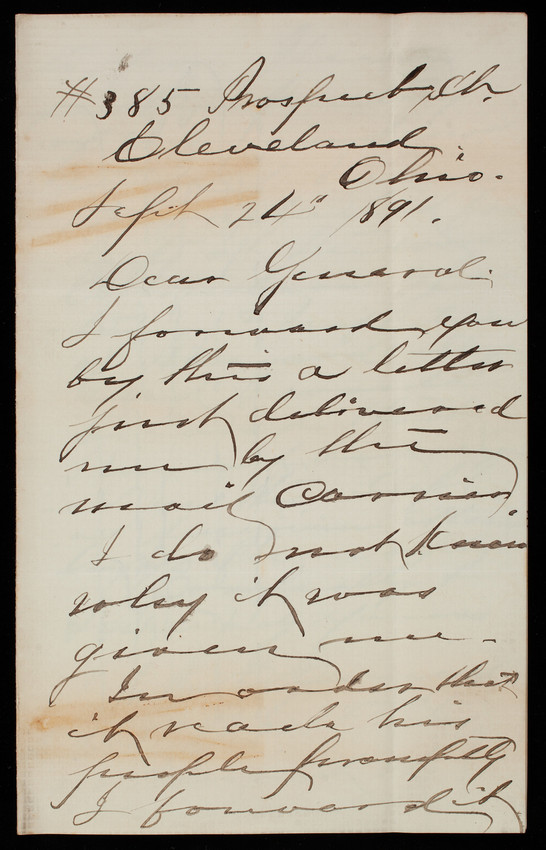 #385 Prospect St.
Cleveland
Ohio.
Sept 24" 1891.
Dear General:
I forward you
by this a letter
just delivered
me by the
mail carrier,
I do not know
why it was
given me.
In order that
it reach his
people promptly
I forward it